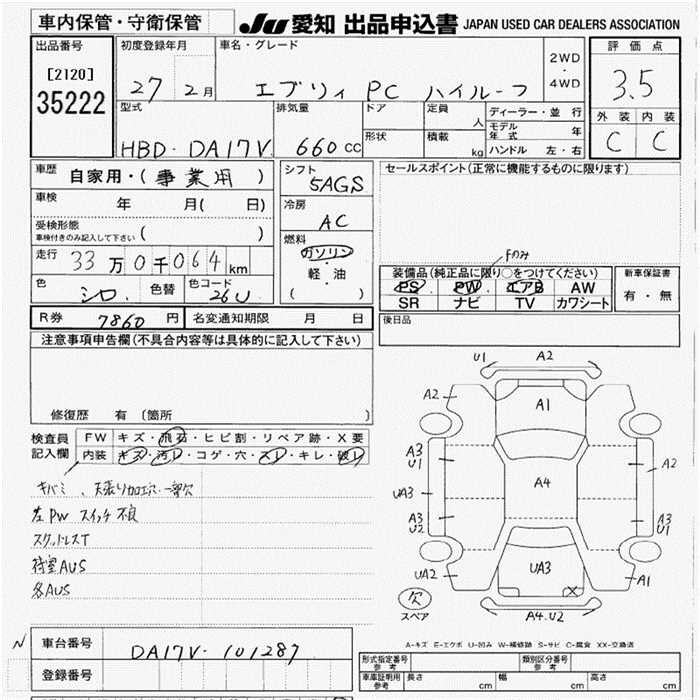 車内保管・守衛保管
JU 愛知 出品申込書 JAPAN USED CAR DEALERS ASSOCIATION
出品番号
[2120]
35222
初度登録年月
27 2月
車名・グレード
エブリィ PC ハイルーフ
2WD
・
4WD
評価点
3.5
外装 内装
C C
型式
HBD・DA17V
排気量
660 CC
ドア
形状
定員
人
積載
kg
ディーラー・並行
モデル年式 年
ハンドル 左・右
車歴
自家用・(事業用)
車検 年 月( 日)
受検形態
車検付きのみ記入して下さい ( )
走行 33万0千064 km
色 シロ 色替 色コード 26U
シフト
5AGS
冷房
AC
燃料
ガソリン
・
軽・油
( )
セールスポイント(正常に機能するものに限ります)
Fのみ
装備品(純正品に限り○をつけてください)
PS PW エアB AW
SR ナビ TV カワシート
新車保証書
有・無
R券 7860 円 名変通知期限 月 日
後日品
注意事項申告欄(不具合内容等は具体的に記入して下さい)
修復歴 有 [箇所 ]
検査員記入欄
FW キズ・飛石・ヒビ割・リペア跡・X要
内装 キズ・汚レ・コゲ・穴・スレ・キレ・破レ
キバミ、天張り加工穴、一部欠
左PWスイッチ不良
スペアレスT
荷室AUS
各AUS
U1 A2
A2 A1 A2
A3
U1
A4
A2
UA3
A3
U2
A3
U1
UA2 UA3 A1
X
欠
スペア
A4.U2
A-キズ E-エクボ U-凹み W-補修跡 S-サビ C-腐食 XX-交換済
N
車台番号 DA17V-101287
登録番号
形式指定番号
参考
類別区分番号
参考
車庫証明用
参考
長さ cm 幅 cm 高さ cm